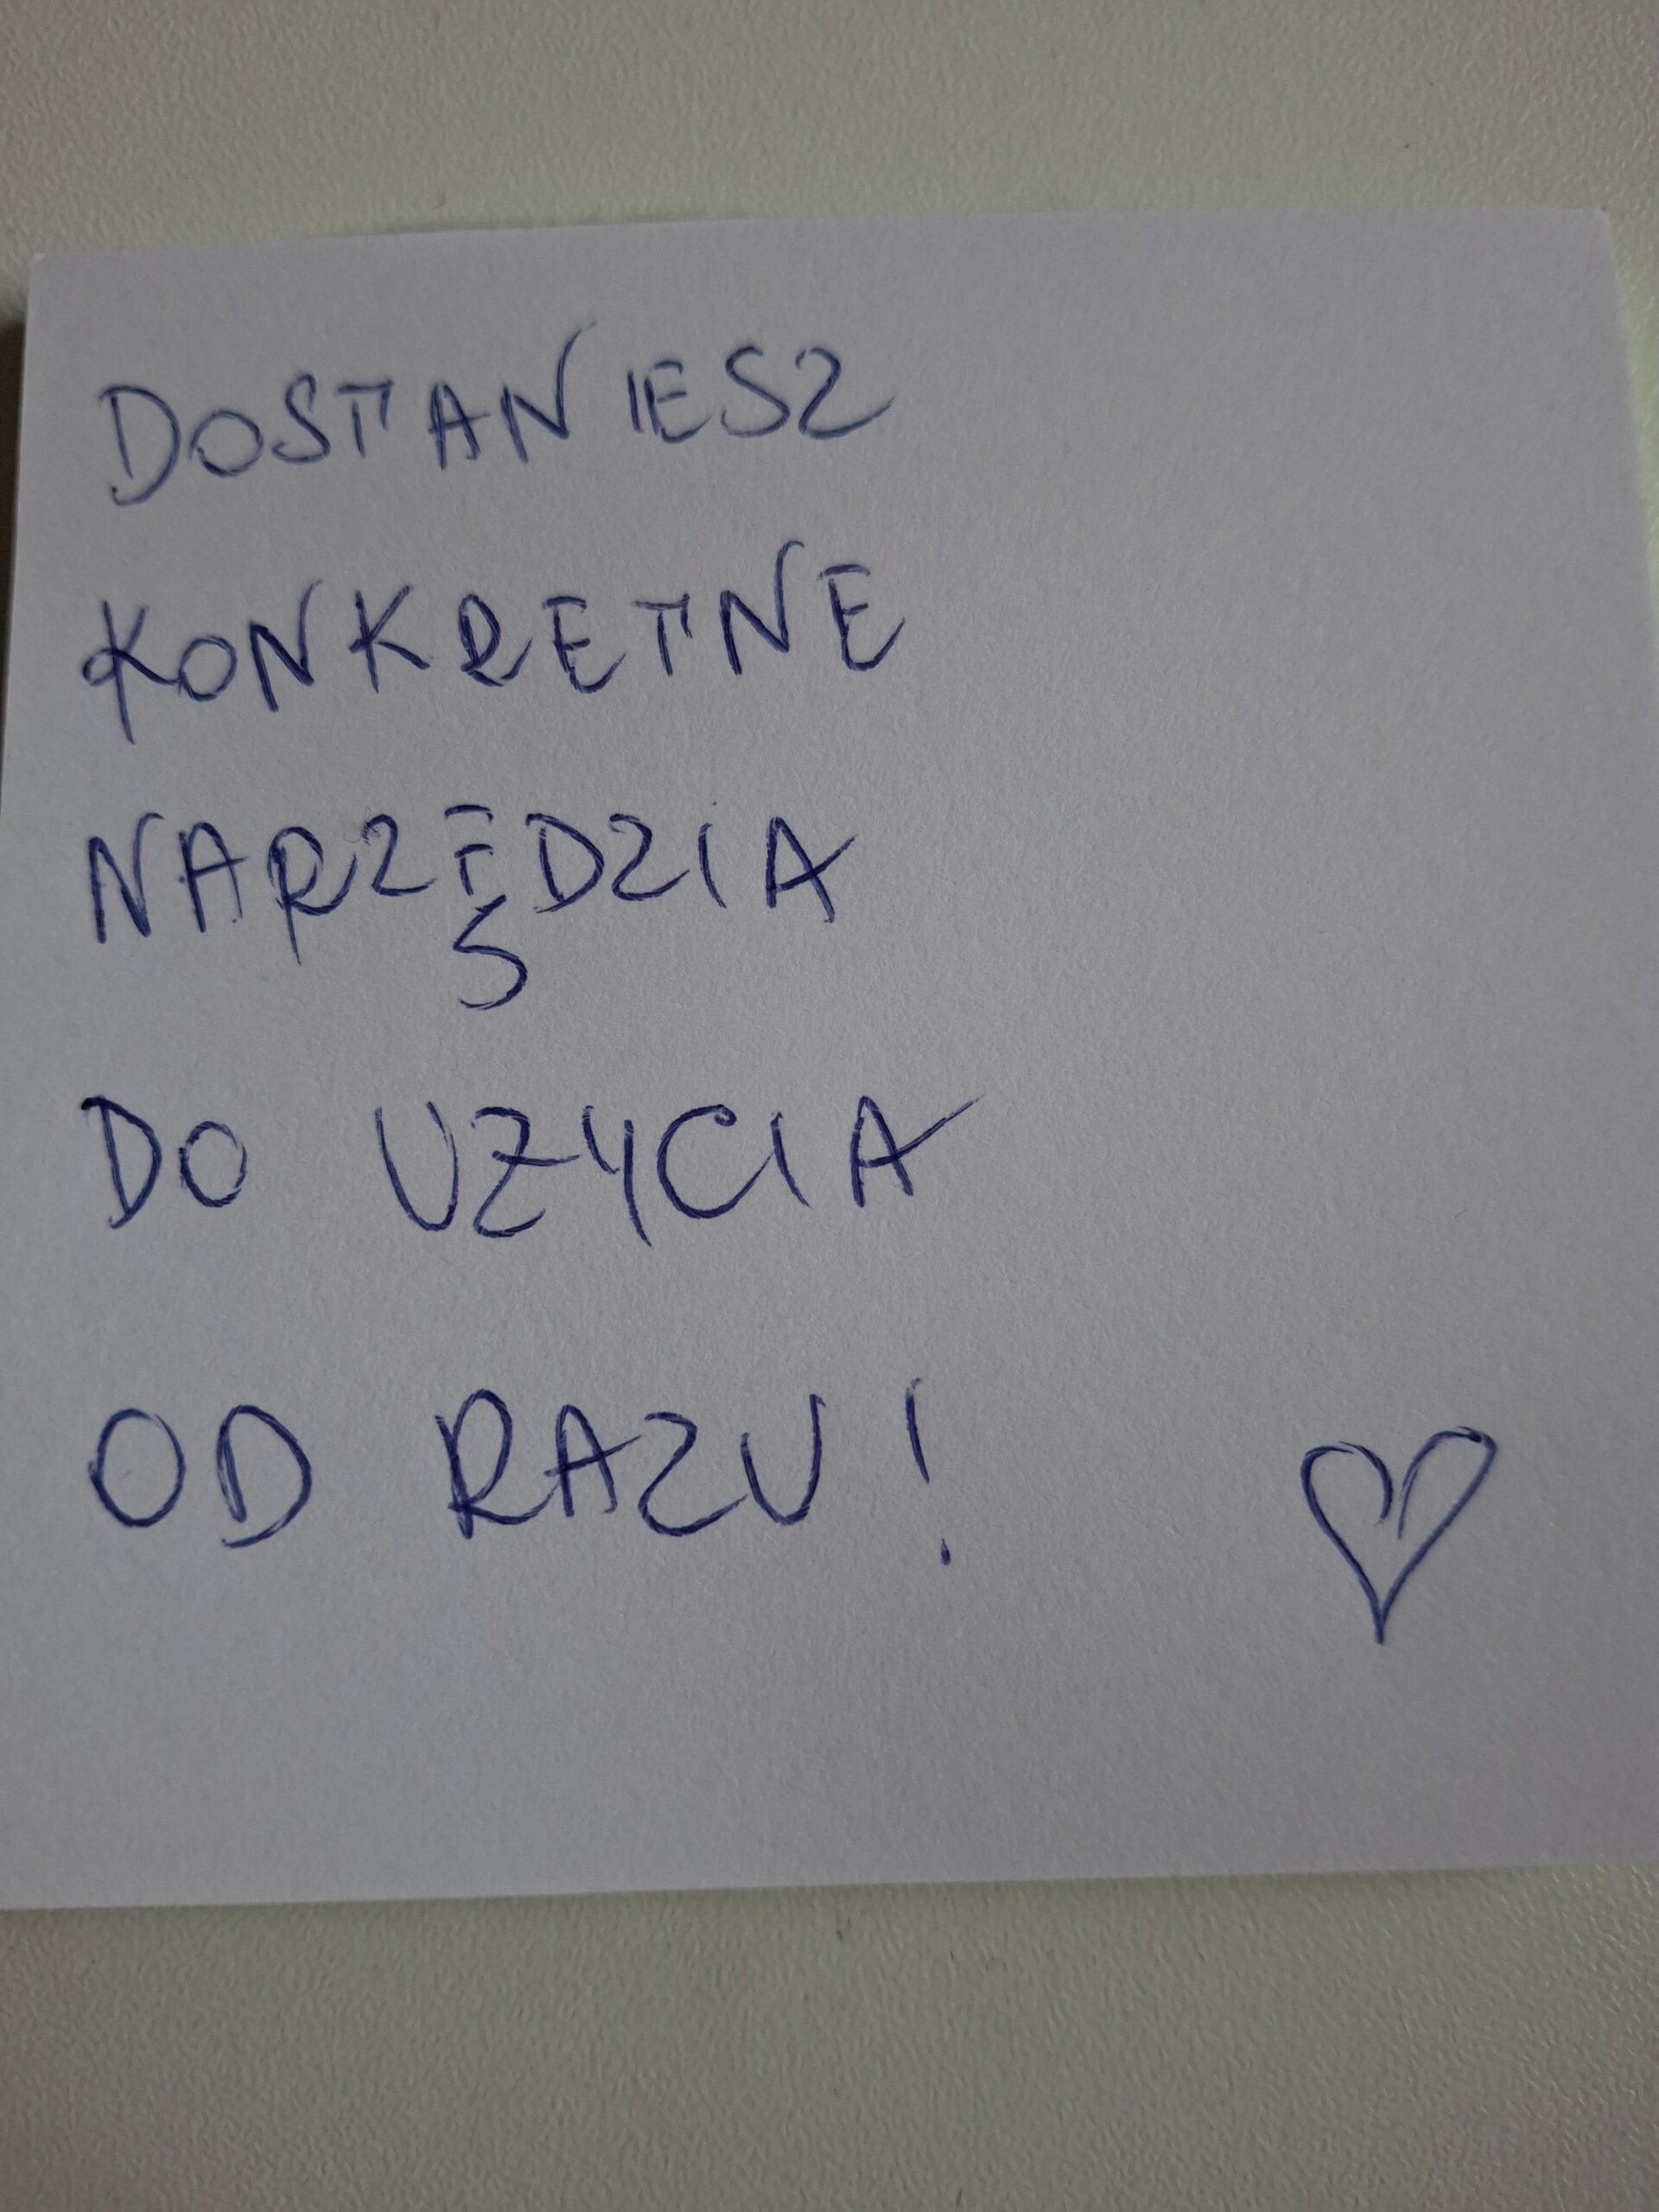 DOSTANIESZ
KONKRETNE
NARZĘDZIA
DO UŻYCIA
OD RAZU!